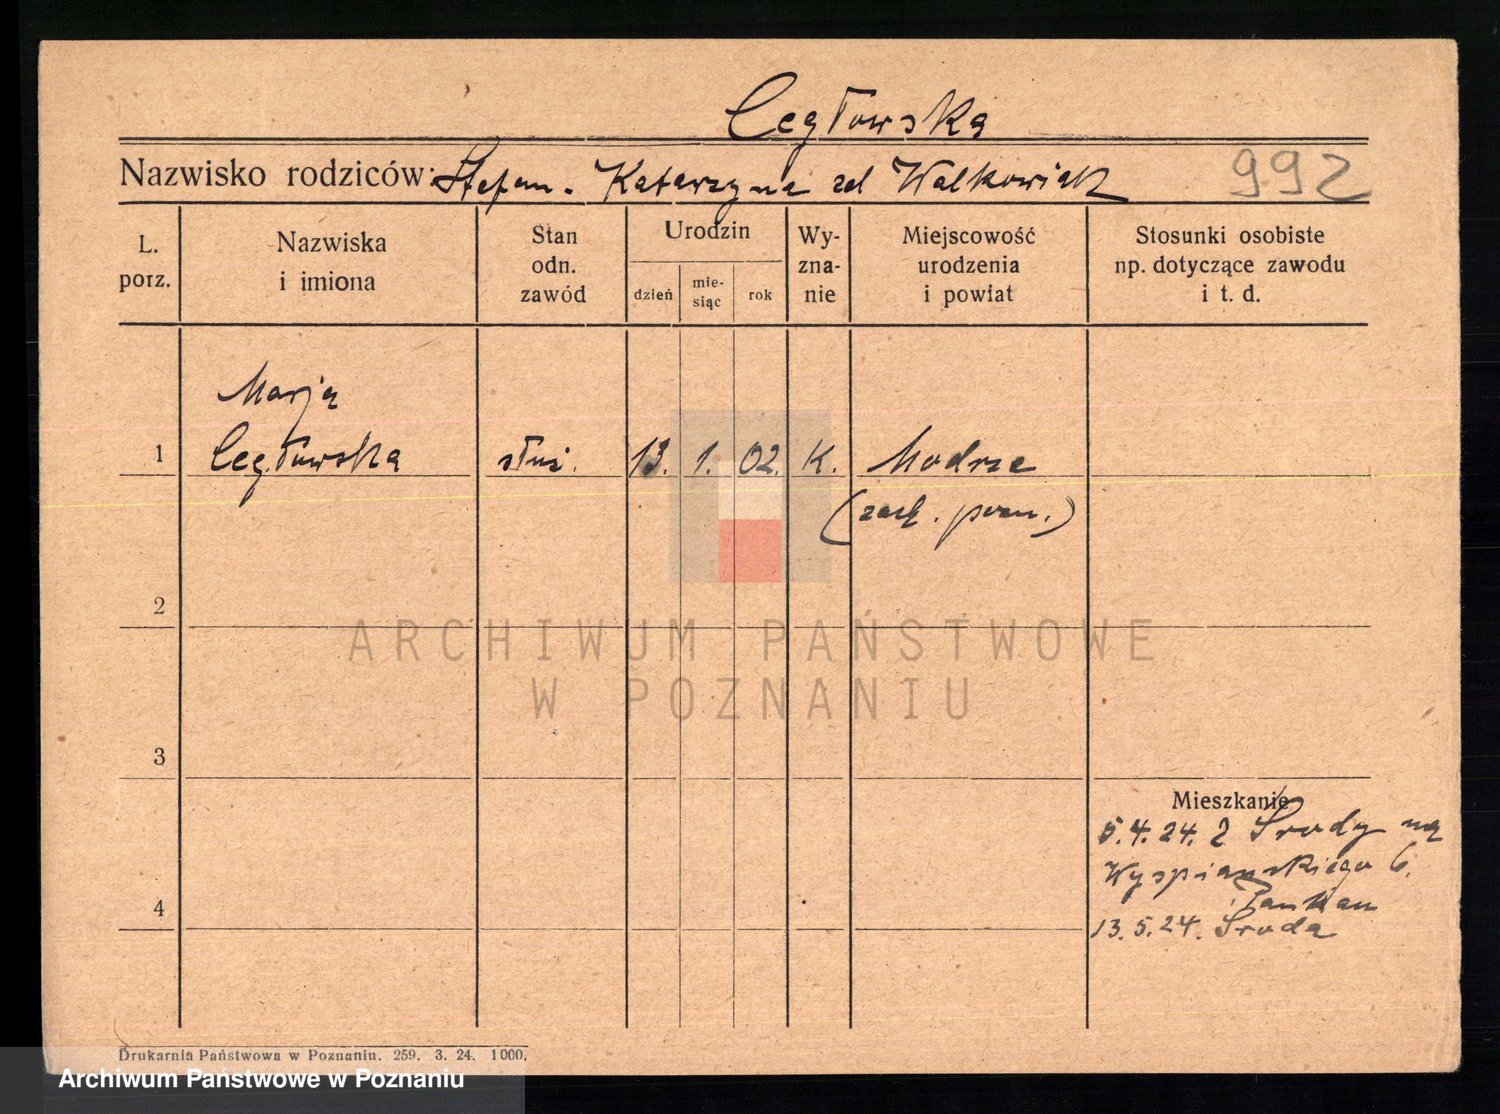 Cegłowska
Nazwisko rodziców: Stefan - Katarzyna zd Walkowiak 992
L. porz.
Nazwiska i imiona
Stan odn. zawód
Urodzin
dzień
mie-
siąc
rok
Wy-
zna-
nie
Miejscowość urodzenia i powiat
Stosunki osobiste np. dotyczące zawodu i t. d.
Marja
1 Cegłowska służ. 13. 1. 02. K. Modrze
(zach. pozn.)
ARCHIWUM PAŃSTWOWE
W POZNANIU
2
3
Mieszkanie
5.4.24. z Środy na
Wyspiańskiego 6.
4
13.5.24. Środa
Drukarnia Państwowa w Poznaniu. 259. 3. 24. 1000.
Archiwum Państwowe w Poznaniu